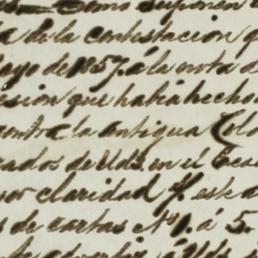 como suponen
a de la contestación q
Mayo de 1857. á la nota d
esion que habia hecho
contra la antigua Col
rados de Uds. en el
or claridad y este a
s de cartas Nº 1. á 5.
advertir á Uds